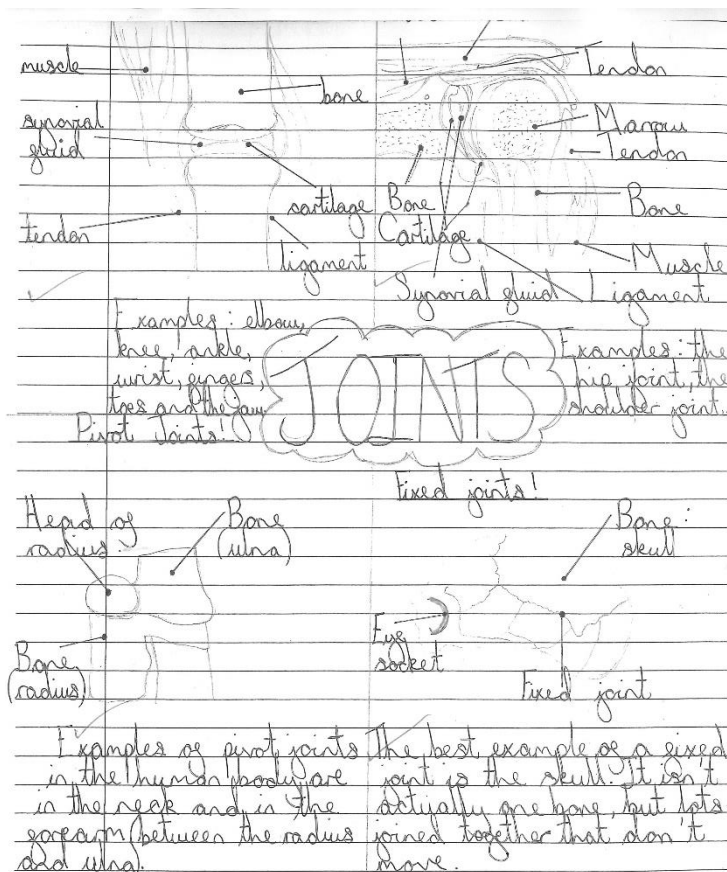 muscle
bone
synovial
fluid
cartilage
tendon
ligament
Tendon
Marrow
Tendon
Bone
Bone
Cartilage
Muscle
Synovial fluid
Ligament
Examples: elbow,
knee, ankle,
wrist, fingers,
toes and the jaw.
JOINTS
Examples: the
hip joint, the
shoulder joint.
Pivot Joints!
Head of
radius:
Bone
(ulna)
Bone
(radius)
Examples of pivot joints
in the human body are
in the neck and in the
forearm between the radius
and ulna.
Fixed joints!
Bone:
skull
Eye
socket
Fixed joint
The best example of a fixed
joint is the skull. It isn't
actually one bone, but lots
joined together that don't
move.